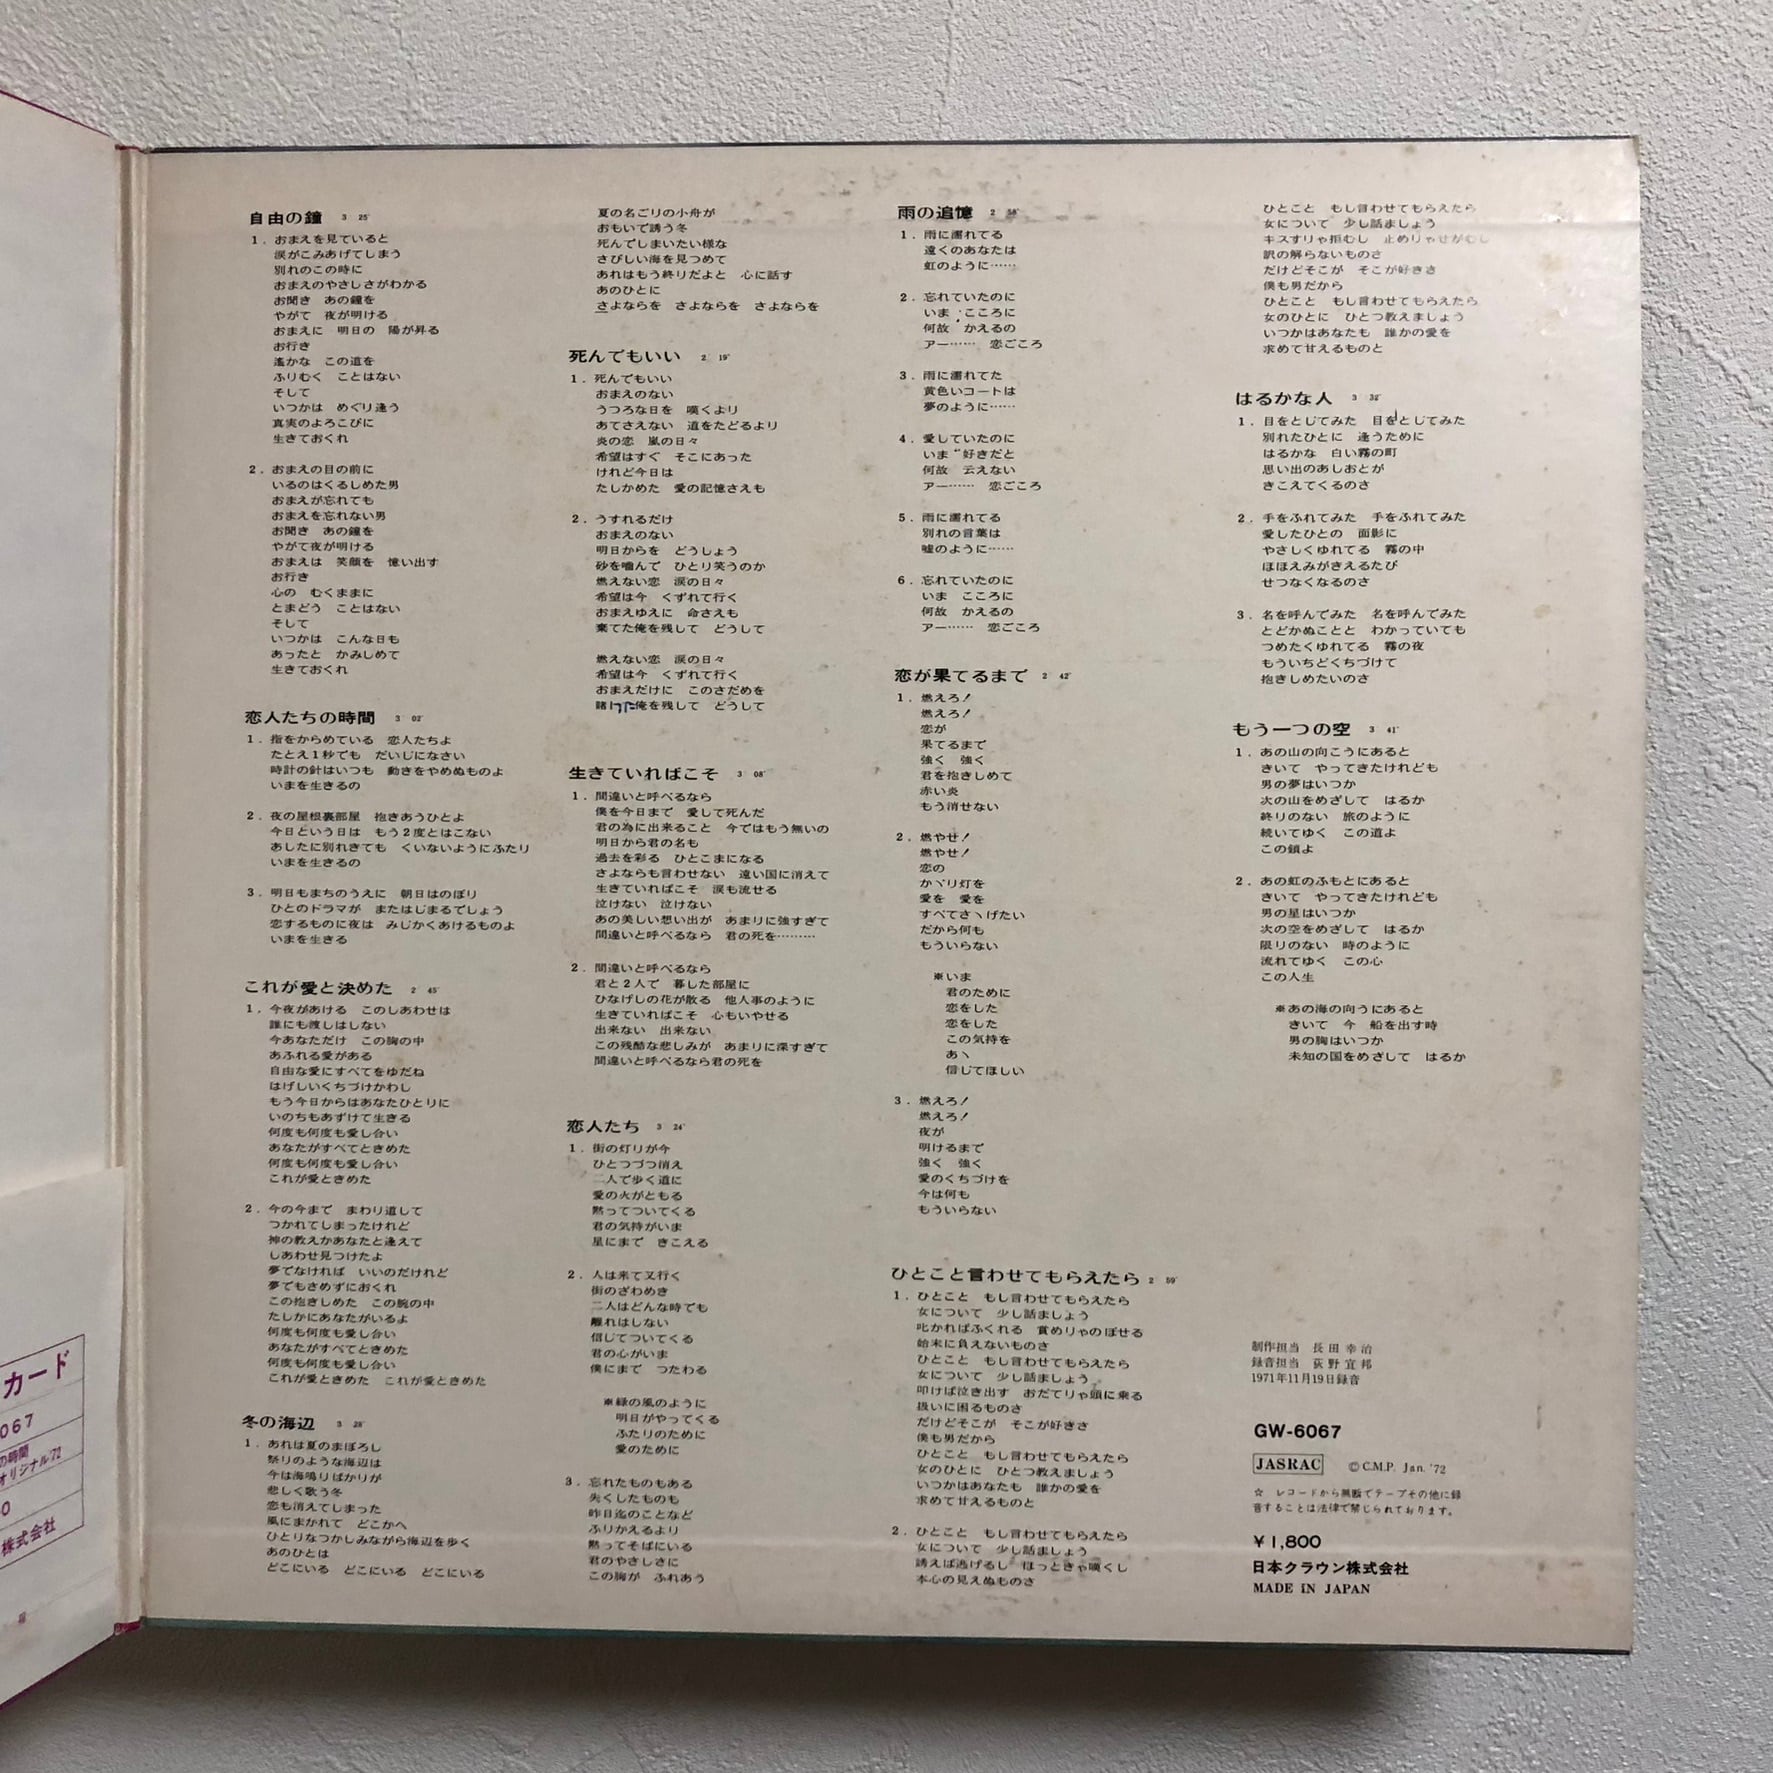 カード
067
の時間
オリジナル'72
株式会社
自由の鐘 3 25"
1. おまえを見ていると
涙がこみあげてしまう
別れのこの時に
おまえのやさしさがわかる
お聞き あの鐘を
やがて 夜が明ける
おまえに 明日の 陽が昇る
お行き
遙かな この道を
ふりむく ことはない
そして
いつかは めぐり逢う
真実のよろこびに
生きておくれ
2. おまえの目の前に
いるのはくるしめた男
おまえが忘れても
おまえを忘れない男
お聞き あの鐘を
やがて夜が明ける
おまえは 笑顔を 憶い出す
お行き
心の むくままに
とまどう ことはない
そして
いつかは こんな日も
あったと かみしめて
生きておくれ
恋人たちの時間 3 02"
1. 指をからめている 恋人たちよ
たとえ1秒でも だいじになさい
時計の針はいつも 動きをやめぬものよ
いまを生きるの
2. 夜の屋根裏部屋 抱きあうひとよ
今日という日は もう2度とはこない
あしたに別れきても くいないようにふたり
いまを生きるの
3. 明日もまちのうえに 朝日はのぼり
ひとのドラマが またはじまるでしょう
恋するものに夜は みじかくあけるものよ
いまを生きる
これが愛と決めた 2 45"
1. 今夜があける このしあわせは
誰にも渡しはしない
今あなただけ この胸の中
あふれる愛がある
自由な愛にすべてをゆだね
はげしいくちづけかわし
もう今日からはあなたひとりに
いのちもあずけて生きる
何度も何度も愛し合い
あなたがすべてときめた
何度も何度も愛し合い
これが愛ときめた
2. 今の今まで まわり道して
つかれてしまったけれど
神の教えかあなたと逢えて
しあわせ見つけたよ
夢でなければ いいのだけれど
夢でもさめずにおくれ
この抱きしめた この腕の中
たしかにあなたがいるよ
何度も何度も愛し合い
あなたがすべてときめた
何度も何度も愛し合い
これが愛ときめた これが愛ときめた
冬の海辺 3 28"
1. あれは夏のまぼろし
祭りのような海辺は
今は海鳴りばかりが
悲しく歌う冬
恋も消えてしまった
風にまかれて どこかへ
ひとりなつかしみながら海辺を歩く
あのひとは
どこにいる どこにいる どこにいる
夏の名ごりの小舟が
おもいで誘う冬
死んでしまいたい様な
さびしい海を見つめて
あれはもう終りだよと 心に話す
あのひとに
さよならを さよならを さよならを
死んでもいい 2 19"
1. 死んでもいい
おまえのない
うつろな日を 嘆くより
あてさえない 道をたどるより
炎の恋 嵐の日々
希望はすぐ そこにあった
けれど今日は
たしかめた 愛の記憶さえも
2. うすれるだけ
おまえのない
明日からを どうしょう
砂を嚙んで ひとり笑うのか
燃えない恋 涙の日々
希望は今 くずれて行く
おまえゆえに 命さえも
棄てた俺を残して どうして
燃えない恋 涙の日々
希望は今 くずれて行く
おまえだけに このさだめを
賭けた俺を残して どうして
生きていればこそ 3 08"
1. 間違いと呼べるなら
僕を今日まで 愛して死んだ
君の為に出来ること 今ではもう無いの
明日から君の名も
過去を彩る ひとこまになる
さよならも言わせない 遠い国に消えて
生きていればこそ 涙も流せる
泣けない 泣けない
あの美しい想い出が あまりに強すぎて
間違いと呼べるなら 君の死を………
2. 間違いと呼べるなら
君と2人で 暮した部屋に
ひなげしの花が散る 他人事のように
生きていればこそ 心もいやせる
出来ない 出来ない
この残酷な悲しみが あまりに深すぎて
間違いと呼べるなら君の死を
恋人たち 3 24"
1. 街の灯りが今
ひとつづつ消え
二人で歩く道に
愛の火がともる
黙ってついてくる
君の気持がいま
星にまで きこえる
2. 人は来て又行く
街のざわめき
二人はどんな時でも
離れはしない
信じてついてくる
君の心がいま
僕にまで つたわる
※緑の風のように
明日がやってくる
ふたりのために
愛のために
3. 忘れたものもある
失くしたものも
昨日迄のことなど
ふりかえるより
黙ってそばにいる
君のやさしさに
この胸が ふれあう
雨の追憶 2 58"
1. 雨に濡れてる
遠くのあなたは
虹のように……
2. 忘れていたのに
いま こころに
何故 かえるの
アー…… 恋ごころ
3. 雨に濡れてた
黄色いコートは
夢のように……
4. 愛していたのに
いま 好きだと
何故 云えない
アー…… 恋ごころ
5. 雨に濡れてる
別れの言葉は
嘘のように……
6. 忘れていたのに
いま こころに
何故 かえるの
アー…… 恋ごころ
恋が果てるまで 2 42"
1. 燃えろ!
燃えろ!
恋が
果てるまで
強く 強く
君を抱きしめて
赤い炎
もう消せない
2. 燃やせ!
燃やせ!
恋の
かゞり灯を
愛を 愛を
すべてさゝげたい
だから何も
もういらない
※いま
君のために
恋をした
恋をした
この気持を
あゝ
信じてほしい
3. 燃えろ!
燃えろ!
夜が
明けるまで
強く 強く
愛のくちづけを
今は何も
もういらない
ひとこと言わせてもらえたら 2 59"
1. ひとこと もし言わせてもらえたら
女について 少し話ましょう
叱かればふくれる 賞めりゃのぼせる
始末に負えないものさ
ひとこと もし言わせてもらえたら
女について 少し話ましょう
叩けば泣き出す おだてりゃ頭に乗る
扱いに困るものさ
だけどそこが そこが好きさ
僕も男だから
ひとこと もし言わせてもらえたら
女のひとに ひとつ教えましょう
いつかはあなたも 誰かの愛を
求めて甘えるものと
2. ひとこと もし言わせてもらえたら
女について 少し話ましょう
誘えば逃げるし ほっときゃ嘆くし
本心の見えぬものさ
ひとこと もし言わせてもらえたら
女について 少し話ましょう
キスすりゃ拒むし 止めりゃせがむし
訳の解らないものさ
だけどそこが そこが好きさ
僕も男だから
ひとこと もし言わせてもらえたら
女のひとに ひとつ教えましょう
いつかはあなたも 誰かの愛を
求めて甘えるものと
はるかな人 3 32"
1. 目をとじてみた 目をとじてみた
別れたひとに 逢うために
はるかな 白い霧の町
思い出のあしおとが
きこえてくるのさ
2. 手をふれてみた 手をふれてみた
愛したひとの 面影に
やさしくゆれてる 霧の中
ほほえみがきえるたび
せつなくなるのさ
3. 名を呼んでみた 名を呼んでみた
とどかぬことと わかっていても
つめたくゆれてる 霧の夜
もういちどくちづけて
抱きしめたいのさ
もう一つの空 3 41"
1. あの山の向こうにあると
きいて やってきたけれども
男の夢はいつか
次の山をめざして はるか
終りのない 旅のように
続いてゆく この道よ
この鎖よ
2. あの虹のふもとにあると
きいて やってきたけれども
男の星はいつか
次の空をめざして はるか
限りのない 時のように
流れてゆく この心
この人生
※あの海の向うにあると
きいて 今 船を出す時
男の胸はいつか
未知の国をめざして はるか
制作担当 長田幸治
録音担当 荻野宜邦
1971年11月19日録音
GW-6067
JASRAC ©C.M.P. Jan. '72
☆ レコードから無断でテープその他に録
音することは法律で禁じられております。
¥1,800
日本クラウン株式会社
MADE IN JAPAN